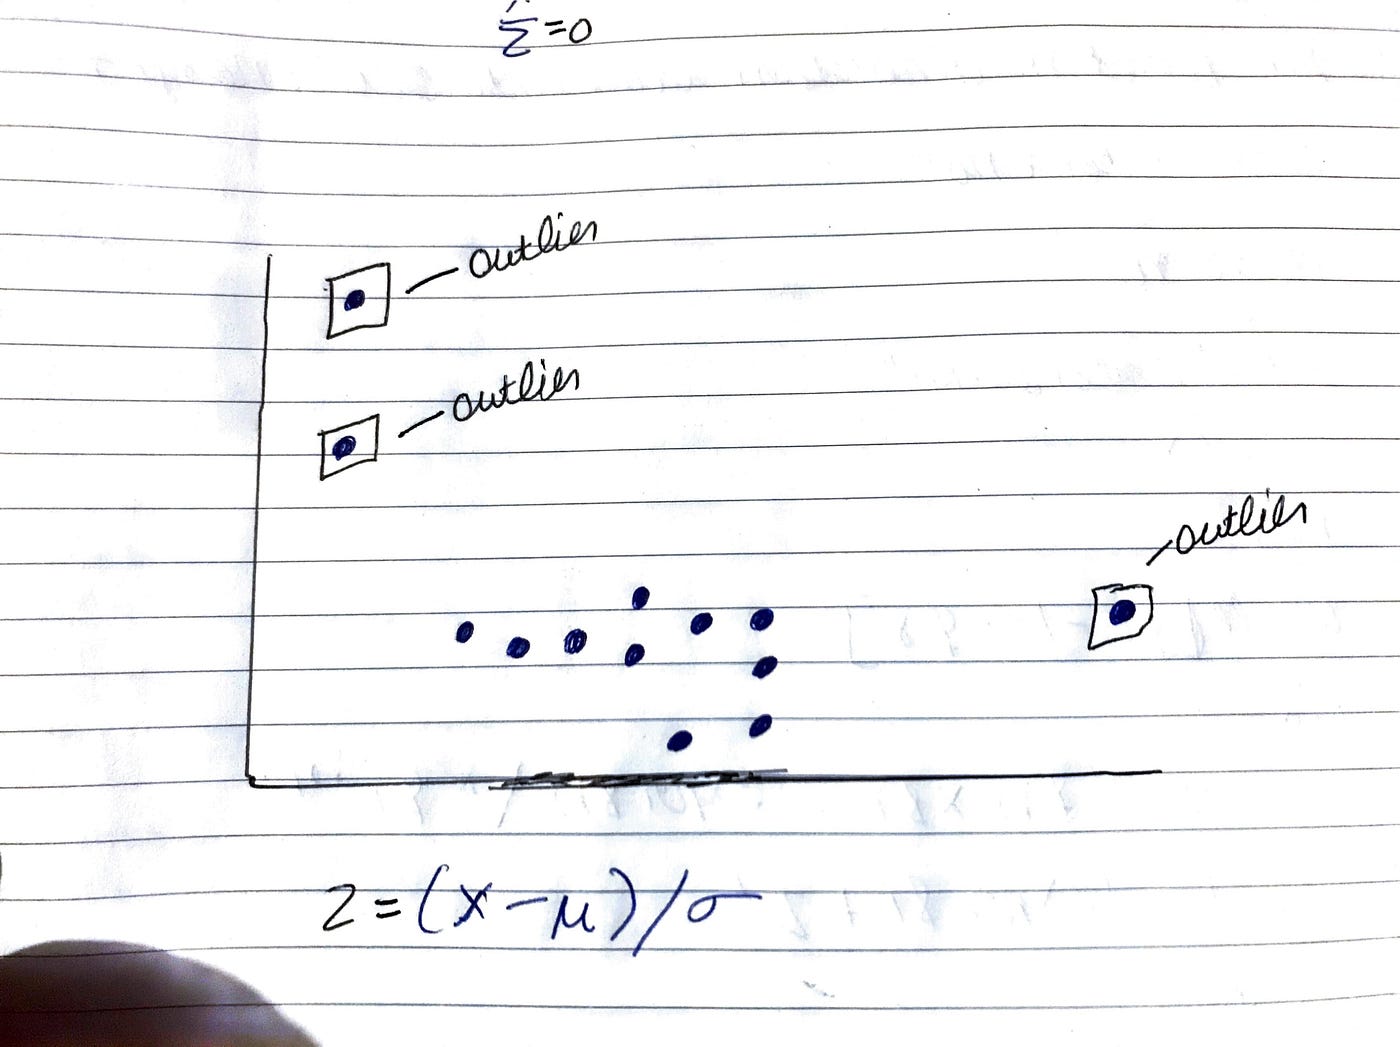 Σ=0
outlier
outlier
outlier
Z=(x-μ)/σ